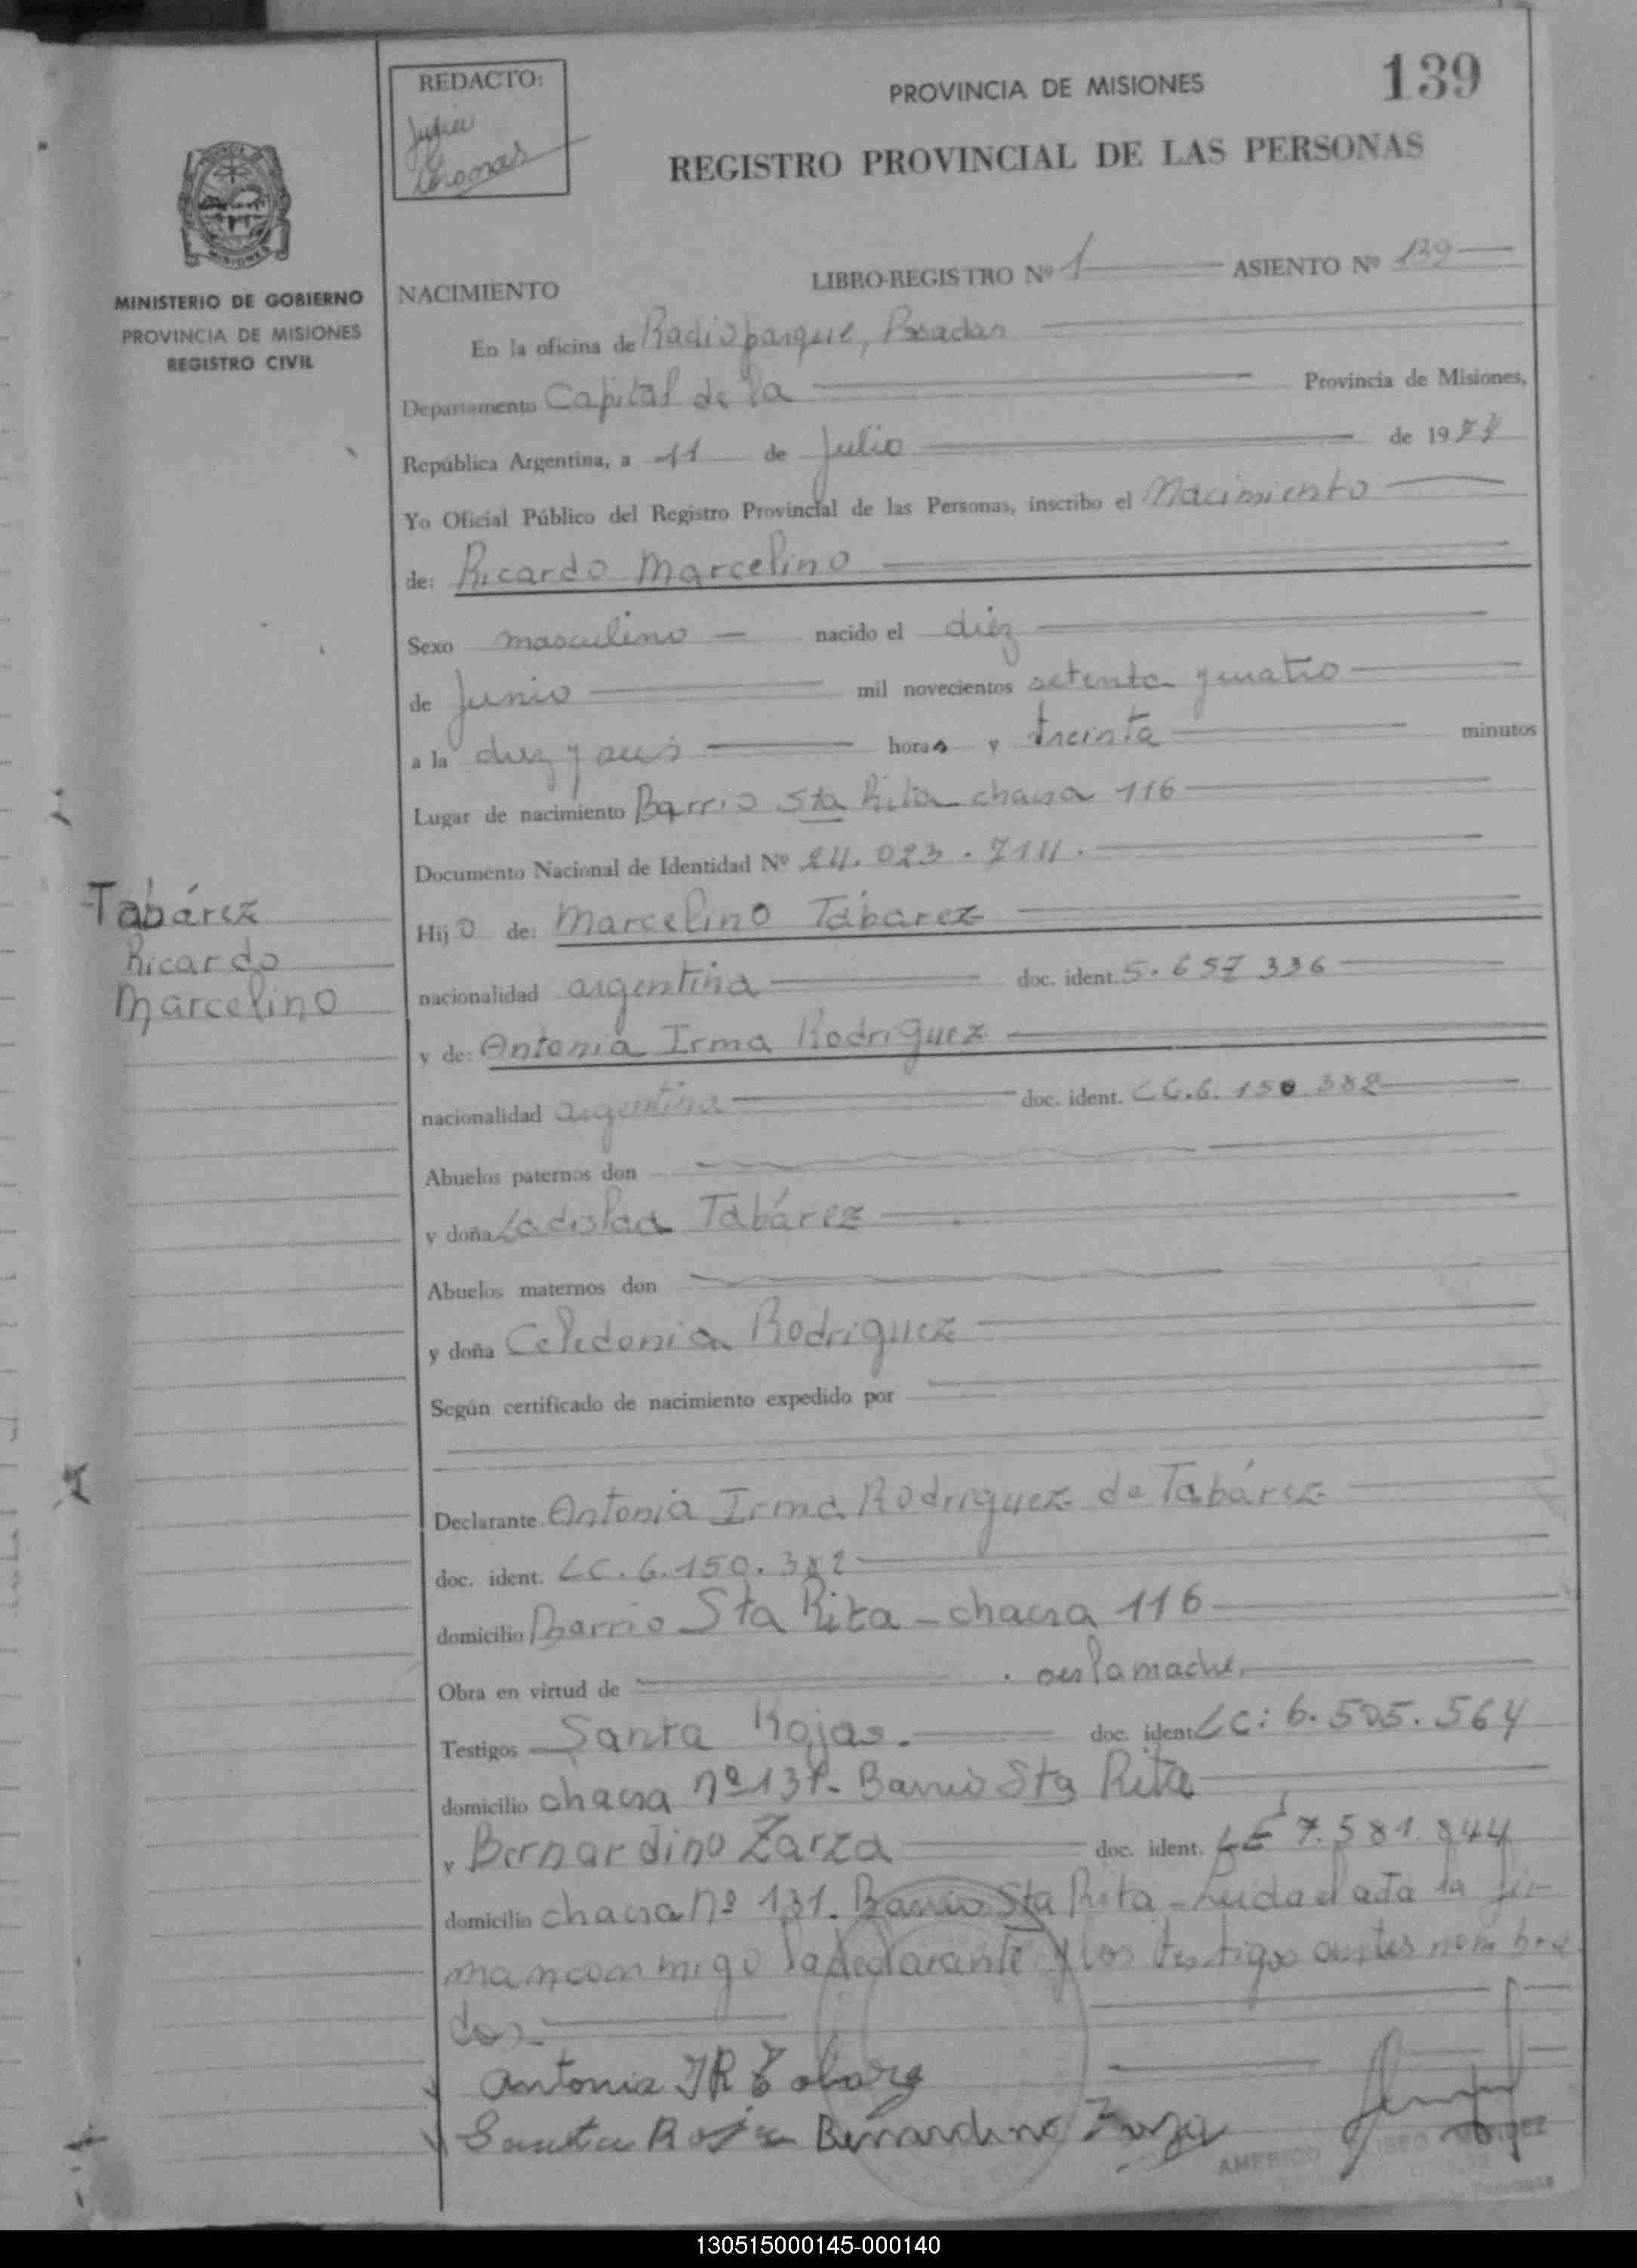 139
REDACTO:
PROVINCIA DE MISIONES
REGISTRO PROVINCIAL DE LAS PERSONAS
MINISTERIO DE GOBIERNO
PROVINCIA DE MISIONES
REGISTRO CIVIL
NACIMIENTO LIBRO-REGISTRO Nº 1 ASIENTO Nº 139
En la oficina de Radioparque, Posadas
Departamento Capital de la Provincia de Misiones,
República Argentina, a 11 de Julio de 19
Yo Oficial Público del Registro Provincial de las Personas, inscribo el Nacimiento
de: Ricardo Marcelino
Sexo masculino nacido el diez
de Junio mil novecientos setenta y cuatro
a la diez y seis horas y treinta minutos
Lugar de nacimiento Barrio Sta Rita chacra 116
Documento Nacional de Identidad Nº 24.023.714.
Tabárez
Ricardo
Marcelino
Hijo de: Marcelino Tabarez
nacionalidad argentina doc. ident. 5.657 336
y de: Antonia Irma Rodriguez
nacionalidad argentina doc. ident. LC.6.150.382
Abuelos paternos don
y doña Ladislaa Tabárez
Abuelos maternos don
y doña Celedonia Rodriguez
Según certificado de nacimiento expedido por
Declarante Antonia Irma Rodriguez de Tabárez
doc. ident. LC.6.150.382
domicilio Barrio Sta Rita - chacra 116
Obra en virtud de ser la madre.
Testigos Santa Rojas. doc. ident LC: 6.505.564
domicilio chacra nº 131- Barrio Sta Rita
y Bernardino Zarza doc. ident. LE 7.581.844
domicilio chacra nº 131. Barrio Sta Rita - Leida el acta la fir-
man conmigo la declarante y los testigos antes nombra
dos.
Antonia I R T
Santa Rojas Bernardino Zarza
AMERICO
130515000145-000140